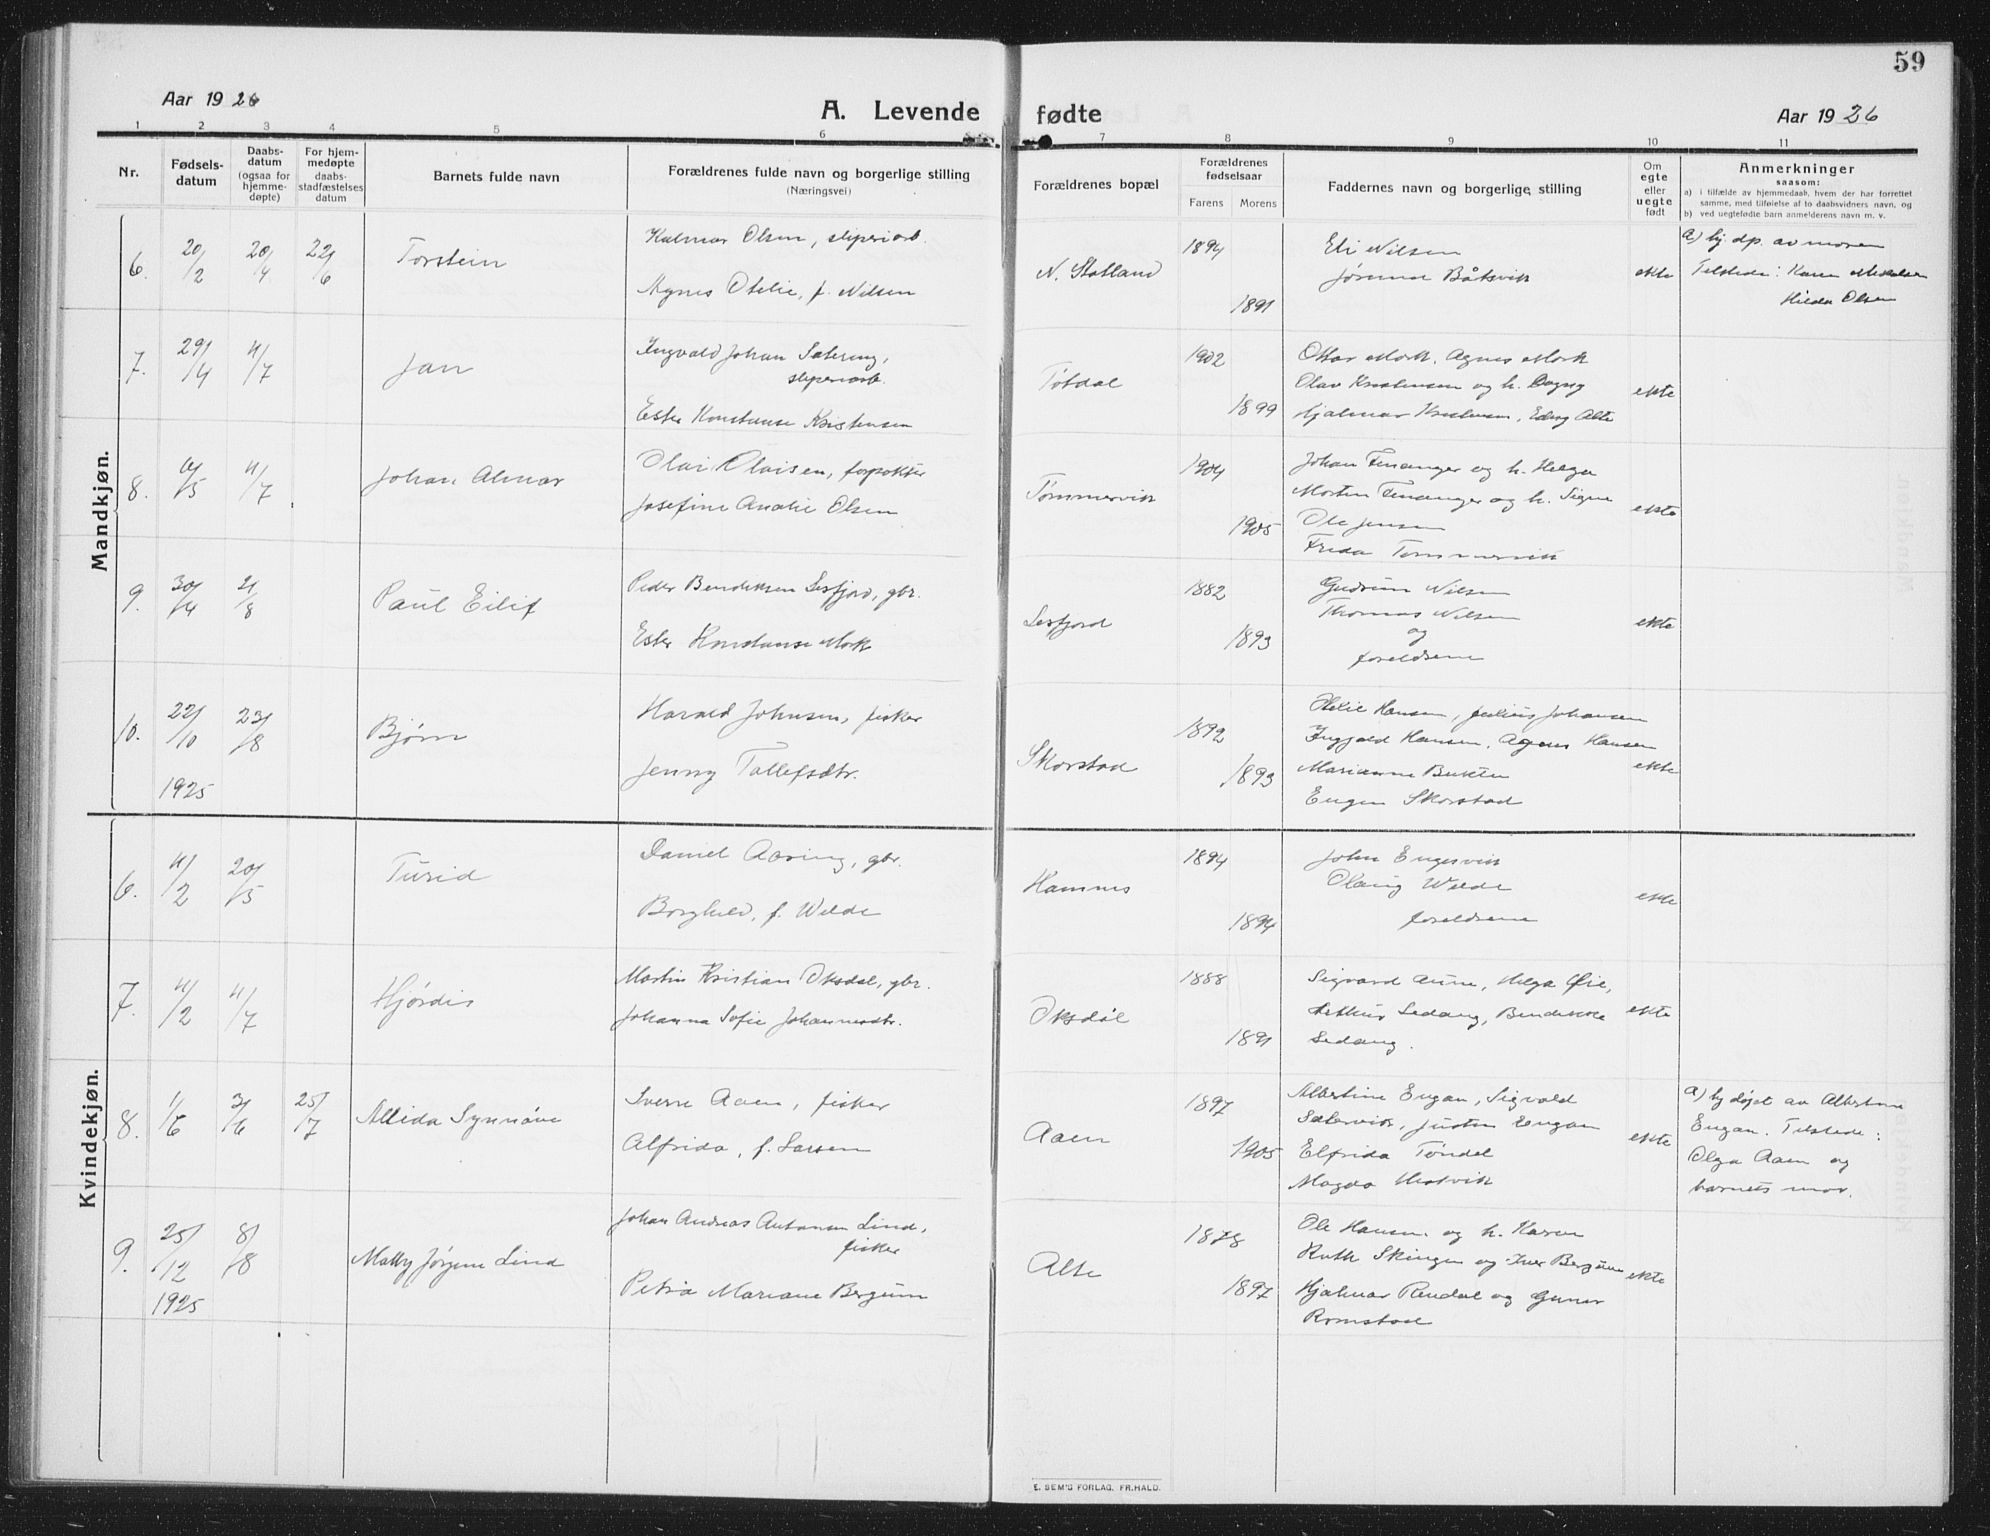 59
Aar 1926
A. Levende fødte
Aar 1926
1 2 3 4 5 6 7 8 9 10 11
Nr.
Fødsels-
datum
Daabs-
datum
(ogsaa for
hjemme-
døpte)
For hjem-
medøpte
daabs-
stadfæstelses
datum
Barnets fulde navn
Forældrenes fulde navn og borgerlige stilling
(Næringsvei)
Forældrenes bopæl
Forældrenes
fødselsaar
Farens Morens
Faddernes navn og borgerlige stilling
Om
egte
eller
uegte
født
Anmerkninger
saasom:
a) i tilfælde av hjemmedaab, hvem der har forrettet
samme, med tilføielse af to daabsvidners navn, og
b) ved uegtefødte barn anmelderens navn m. v.
Mandkjøn.
6. 20/2 20/4 22/6 Torstein
Kalmar Olsen, sliperiarb.
Agnes Otelie, f. Nilsen
N. Statland
1894
1891
Eli Nilsen
Båtsvik
ekte
a) hj. dp. av moren
Tilstede: Karen
Hilda Olsen
7. 29/4 11/7 Jan
Ingvald Johan
sliperiarb.
Ester Konstanse Kristensen
Tøtdal
1902
1899
Oskar Mork, Agnes Mork
Olav Kristensen og h. Dagny
Hjalmar Kristensen, Alte
ekte
8. 11/7 Johan Almar
Olai Olaisen, forpakter
Josefine Analie Olsen
Tømmervik
1904
1905
Johan Finanger og h. Helga
Morten Finanger og h. Signe
Ole Jensen
Frida Tømmervik
ekte
9. 30/4 21/8 Paul Eilif
Peder Bendiksen Sesfjord, gbr.
Ester Konstanse Mork
Sesfjord
1882
1893
Gudrun Nilsen
Thomas Nilsen
og
foreldrene
ekte
10. 22/10 23/8 Bjørn
1925
Harald Johnsen, fisker
Jenny Tollefsdtr.
Skorstad
1892
1893
Otelie Hansen, Julius Johansen
Ingjald Hansen, Agnes Hansen
Marianne
Eugen Skorstad
ekte
Kvindekjøn.
6. 11/2 20/5 Turid
Daniel Aaring, gbr.
Borghild, f. Welde
Hamnes
1894
1894
John Engesvik
Olaug Welde
foreldrene
ekte
7. 11/2 11/7 Hjørdis
Martin Kristian Oksdal, gbr.
Johanna Sofie Johannesdtr.
Oksdøl
1888
1891
Sigvard Aune, Helga Øie,
Arthur Sedang, Bendikte
Sedang.
ekte
8. 1/6 3/6 25/7 Allida Synnøve
Sverre Aaen, fisker
Alfrida, f. Larsen
Aaen
1897
1905
Albertine Engan, Sigvald
Sætervik, Justin Engan
Elfrida Tøndel
Magda Hestvik
ekte
a) hj. døpt av Albertine
Engan. Tilstede:
Olga Aaen og
barnets mor.
9. 25/12 8/8 Matty Jørgine Lind
1925
Johan Andreas Antonsen Lind,
fisker
Petra Mariane Bergum
Alte
1878
1897
Ole Hansen og h. Karen
Ruth Skingen og Iver Bergum
Hjalmar Rendal og Gunor
Romstad
ekte
E. SEM'S FORLAG. FR.HALD.